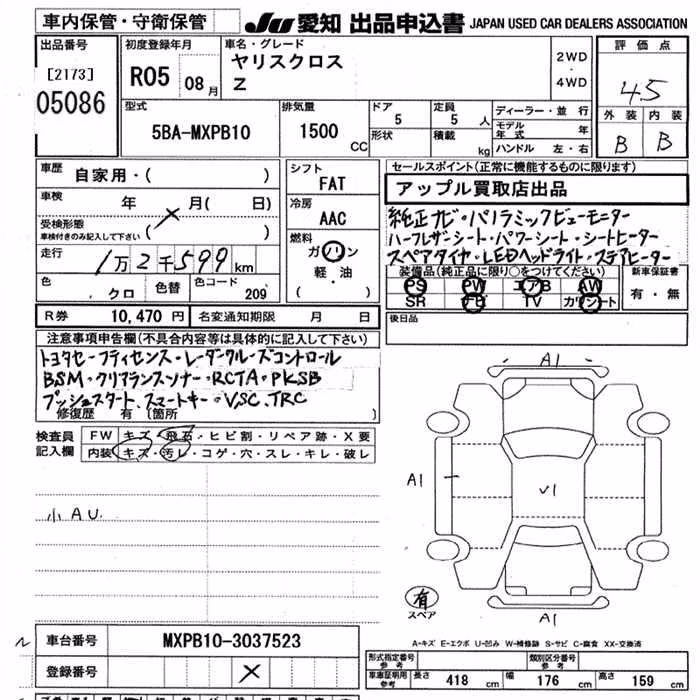 車内保管・守衛保管
JU 愛知 出品申込書 JAPAN USED CAR DEALERS ASSOCIATION
出品番号
[2173]
05086
初度登録年月
R05 08月
車名・グレード
ヤリスクロス
Z
2WD
・
4WD
評価点
4.5
外装 内装
B B
型式
5BA-MXPB10
排気量
1500 CC
ドア 5
形状
定員 5 人
積載 kg
ディーラー・並行
モデル年式 年
ハンドル 左・右
車歴
自家用・( )
車検
年 月( 日)
受検形態
車検付きのみ記入して下さい ( )
走行
1万2千599km
色
クロ
色替
色コード
209
シフト
FAT
冷房
AAC
燃料
ガソリン
軽・油
( )
セールスポイント(正常に機能するものに限ります)
アップル買取店出品
純正ナビ・パノラミックビューモニター
ハーフレザーシート・パワーシート・シートヒーター
スペアタイヤ・LEDヘッドライト・ステアヒーター
装備品(純正品に限り○をつけてください)
PS PW エアB AW
SR ナビ TV カワシート
新車保証書
有・無
R券 10,470 円
名変通知期限 月 日
後日品
注意事項申告欄(不具合内容等は具体的に記入して下さい)
トヨタセーフティセンス・レーダークルーズコントロール
BSM・クリアランスソナー・RCTA・PKSB
プッシュスタート、スマートキー・VSC、TRC
修復歴 有(箇所 )
検査員
記入欄
FW キズ・飛石・ヒビ割・リペア跡・X要
内装 キズ・汚レ・コゲ・穴・スレ・キレ・破レ
小AU.
A1
A1
V1
A1
有
スペア
A-キズ E-エクボ U-凹み W-補修跡 S-サビ C-腐食 XX-交換済
車台番号 MXPB10-3037523
登録番号 ×
形式指定番号
参考
類別区分番号
参考
車庫証明用
参考
長さ 418 cm 幅 176 cm 高さ 159 cm